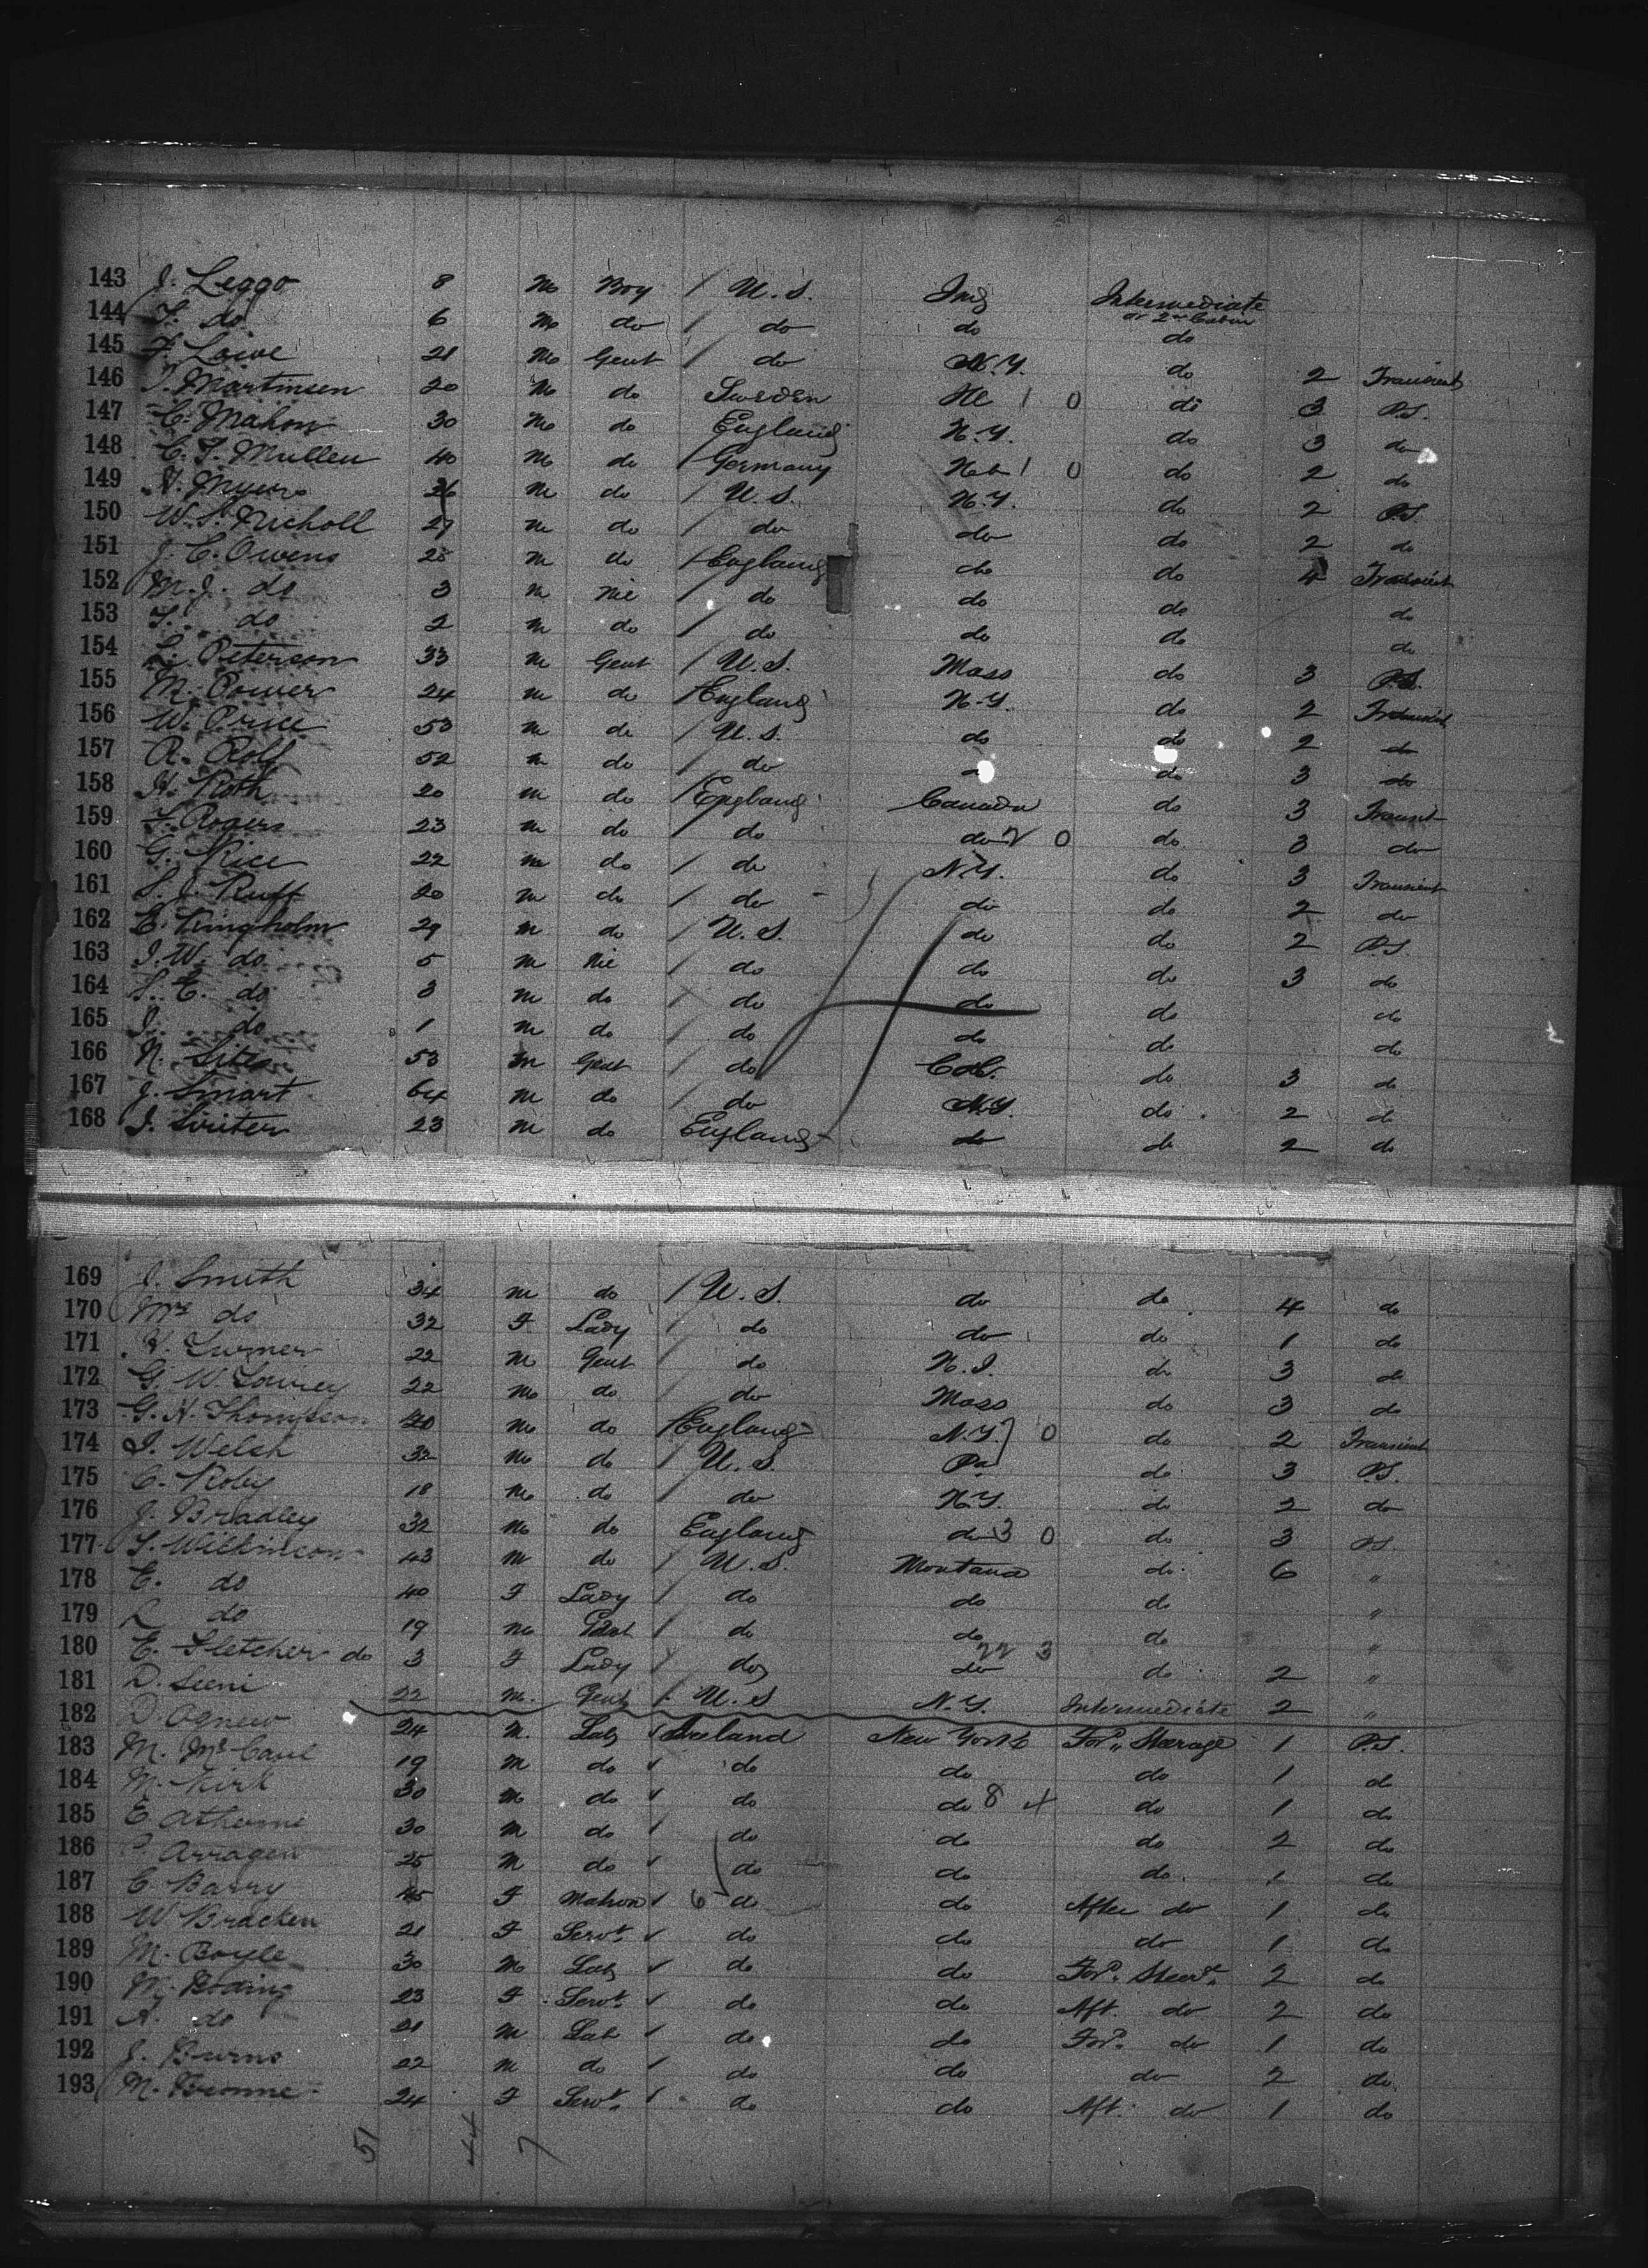 143 J. Leggo 8 M Boy / U.S. Ing Intermediate
or 2nd Cabin
144 T. do 6 M do / do do do
145 F. Loive 21 M Gent / do N.Y. do 2 Transient
146 P. Martinsen 20 M do Sweden Ill 1 0 do 3 P.S.
147 C. Mahon 30 M do England N.Y. do 3 do
148 C. F. Mullen 40 M do / Germany Neb 1 0 do 2 do
149 A. Myers 26 M do / U.S. N.Y. do 2 P.S.
150 W. S. Nicholl 27 M do / do do do 2 do
151 J. C. Owens 28 M do / England do do 4 Transient
152 M. J. do 3 M Nil / do do do do
153 T. do 2 M do / do do do do
154 L. Peterson 33 M Gent / U.S. Mass do 3 P.S.
155 M. Power 24 M do / England N.Y. do 2 Transient
156 W. Price 53 M do / U.S. do do 2 do
157 R. Rolf 52 M do / do do 3 do
158 H. Roth 20 M do / England Canada do 3 Transit
159 F. Rogers 23 M do / do do 2 0 do 3 do
160 G. Rice 22 M do / do N.Y. do 3 Transient
161 S. J. Ruff 20 M do / do - do do 2 do
162 E. Ringholm 29 M do / U.S. do do 2 P.S.
163 I. W. do 5 M Nil / do do do 3 do
164 S. E. do 3 M do / do do do do
165 I. do 1 M do / do do do do
166 N. Sites 53 M Gent / do Col. do 3 do
167 J. Smart 64 M do / do N.Y. do 2 do
168 J. Suiter 23 M do England do do 2 do
169 J. Smith 34 M do / U.S. do do 4 do
170 Mrs do 32 F Lady / do do do 1 do
171 H. Turner 22 M Gent / do N.J. do 3 do
172 G. W. Tourey 22 M do / do Mass do 3 do
173 G. H. Thompson 40 M do / England N.Y. 0 do 2 Transient
174 I. Welsh 32 M do / U.S. Pa do 3 P.S.
175 C. Roby 18 M do / do N.Y. do 2 do
176 J. Bradley 32 M do England do 3 0 do 3 P.S.
177 T. Wilkinson 43 M do / U.S. Montana do 6 "
178 E. do 40 F Lady / do do do "
179 L do 19 M Gent / do do do "
180 E. Fletcher do 3 F Lady / do do 22 3 do 2 "
181 D. Seeni 22 M. Gent / U.S N.Y. Intermediate 2 "
182 D. Agnew 24 M. Lab ✓ Ireland New York For'd Steerage 1 P.S.
183 M. McCaul 19 M do ✓ do do do 1 do
184 M. Kirk 30 M do ✓ do do 8 4 do 1 do
185 E 30 M do / do do do 2 do
186 P. Arragen 25 M do ✓ do do do 1 do
187 C. Barry 45 F Matron ✓ 6 do do After do 1 do
188 W. Bracken 21 F Servt. ✓ do do do 1 do
189 M. Boyle 30 M Lab ✓ do do For'd Steer'e 2 do
190 M. 23 F Servt. ✓ do do Aft. do 2 do
191 A. do 21 M Lab ✓ do do For'd do 1 do
192 J. Burns 22 M do ✓ do do do 2 do
193 M. 24 F Servt. / do do Aft. do 1 do
51 44 7